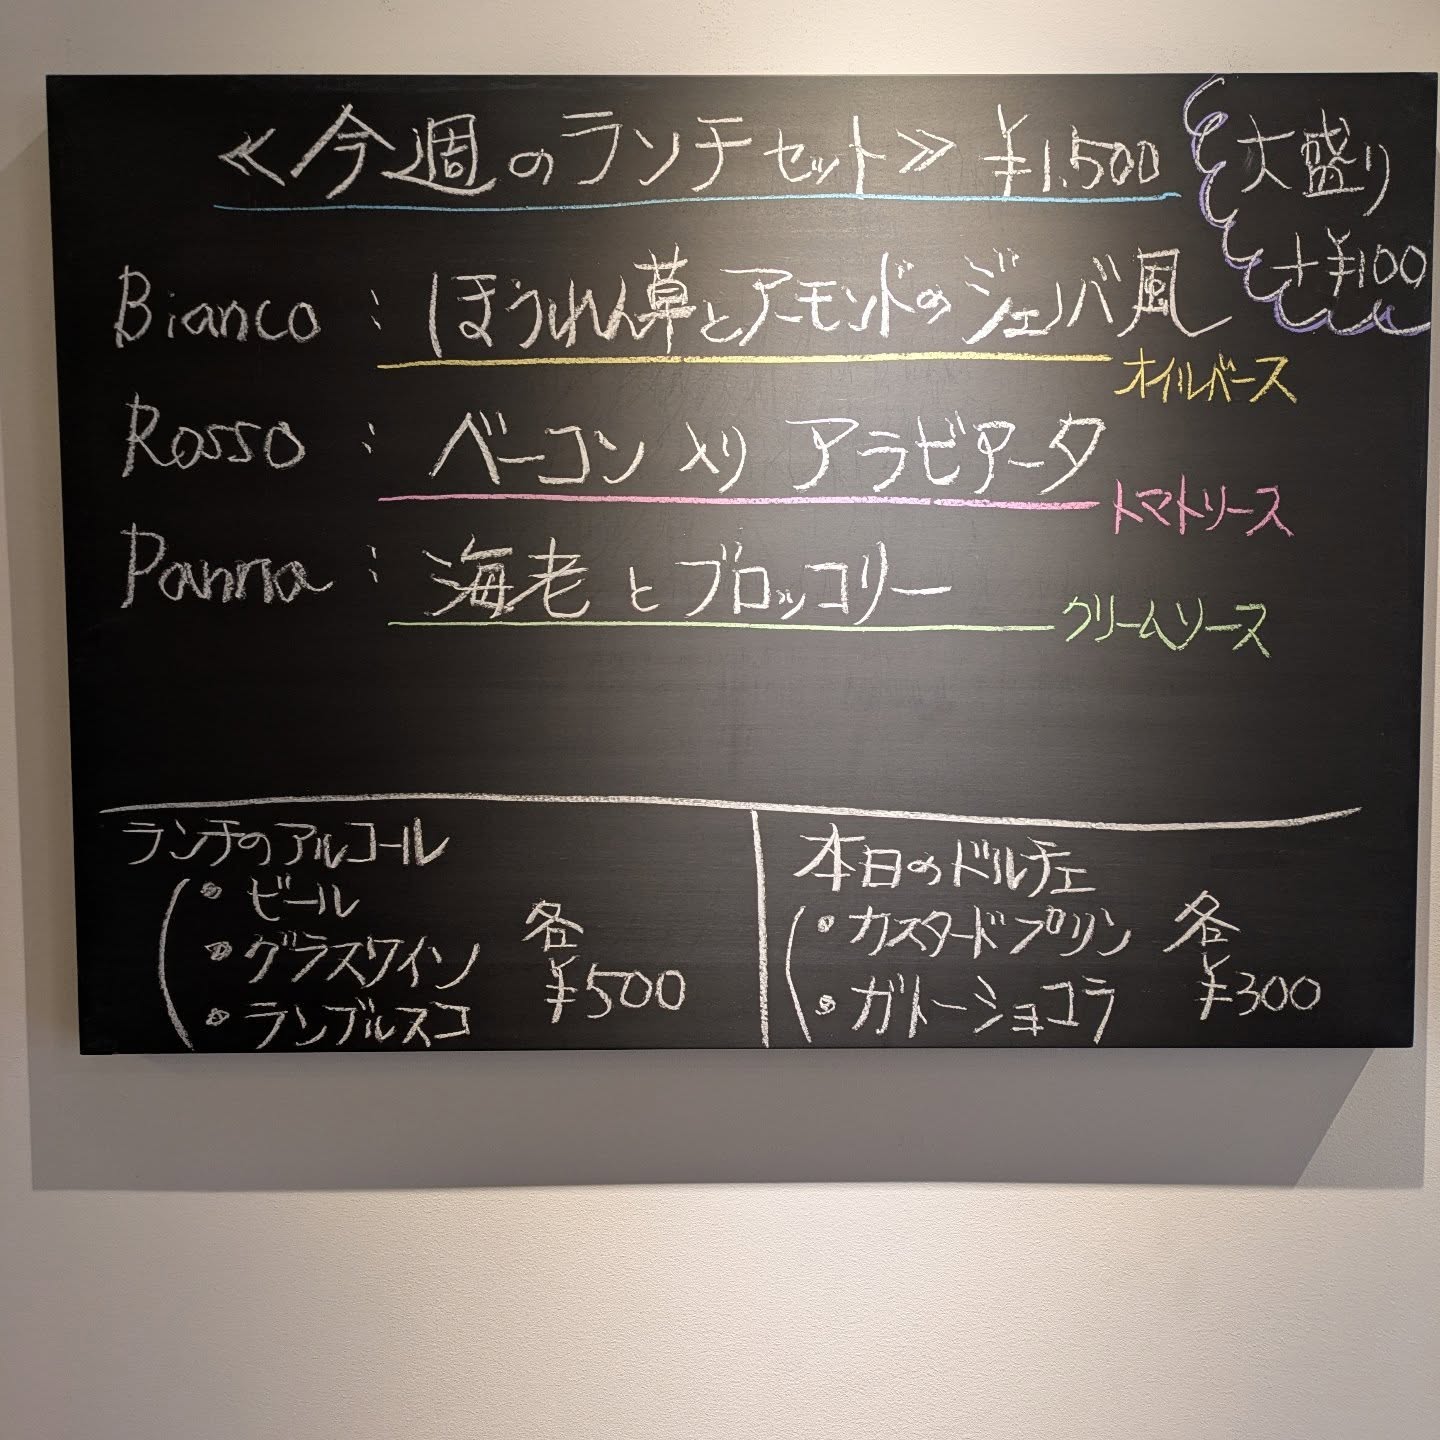 ≪今週のランチセット≫ ¥1,500
大盛り
+¥100
Bianco : ほうれん草とアーモンドのジェノバ風
オイルベース
Rosso : ベーコン入り アラビアータ
トマトソース
Panna : 海老とブロッコリー
クリームソース
ランチのアルコール
・ビール
・グラスワイン
・ランブルスコ
各
¥500
本日のドルチェ
・カスタードプリン
・ガトーショコラ
各
¥300